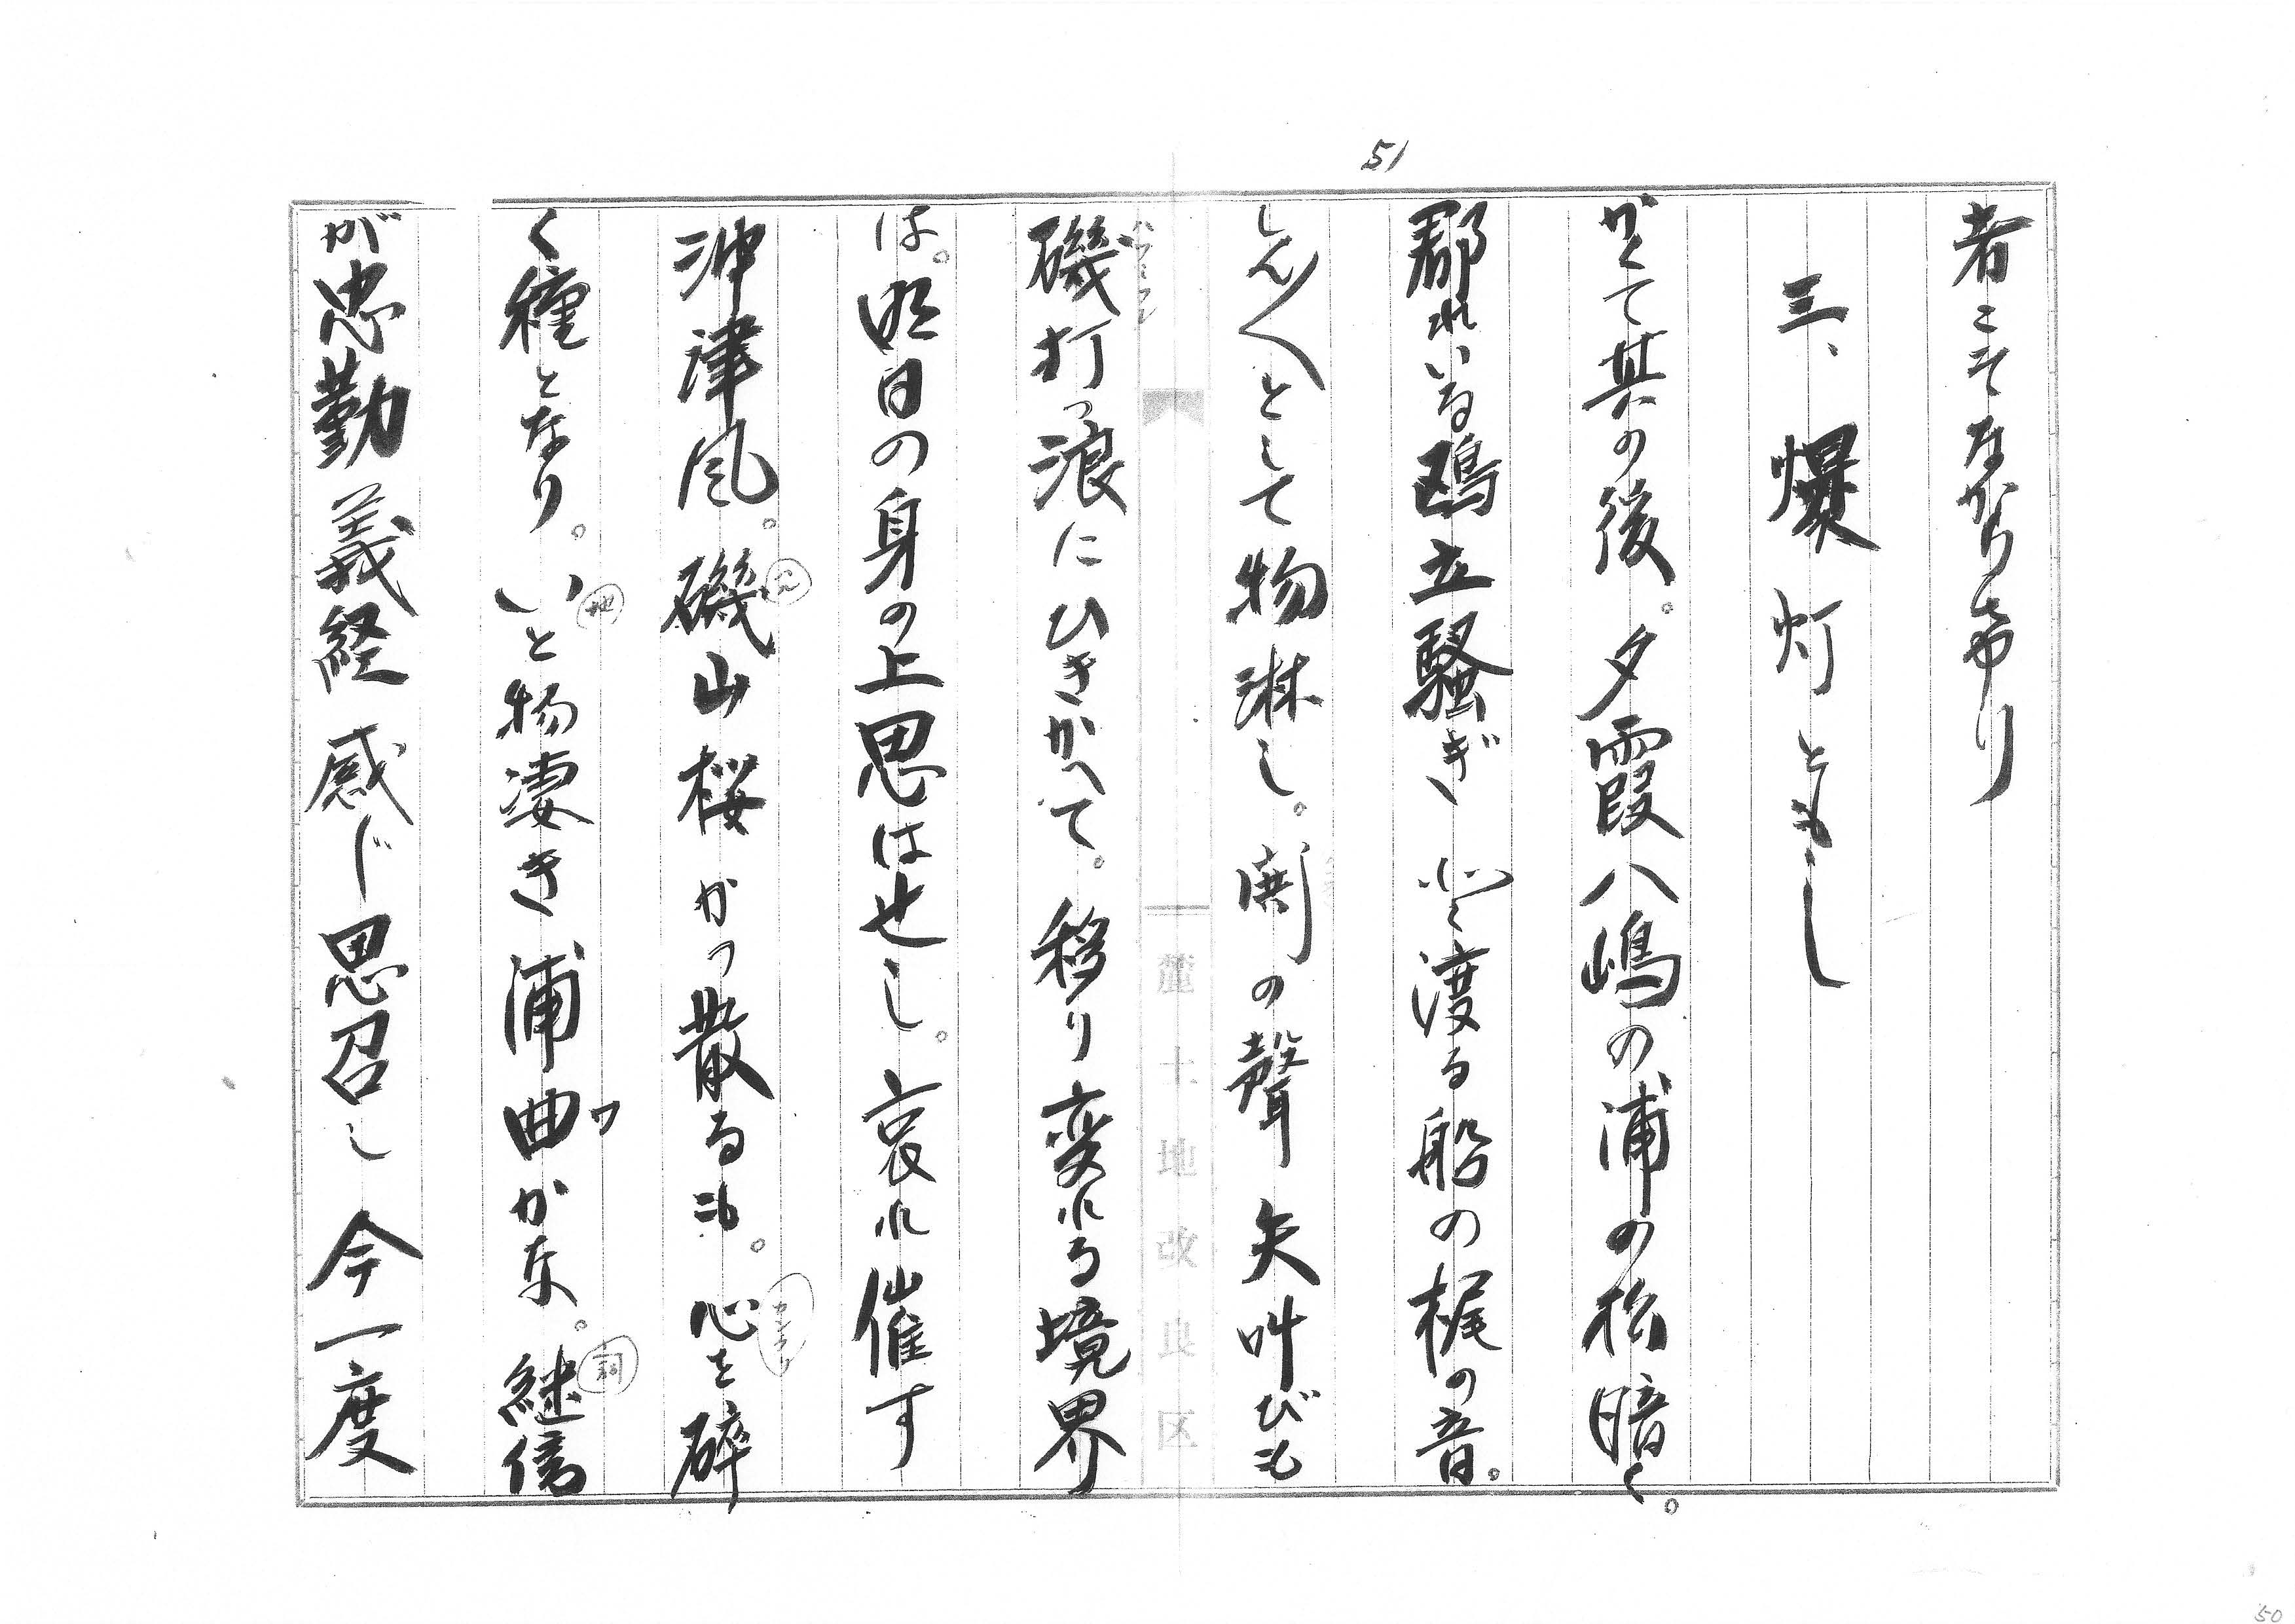 51
者こそなかりけり
三、爆灯ともし
かくて其の後。夕霞八嶋の浦の松暗く。
郡れいる鴎立騒ぎ 渡る船の梶の音。
しん〱として物淋し。鬨の聲 矢叫びも
磯打つ浪にひきかへて。移り変れる境界
は。明日の身の上思はせし。哀れ催す
沖津風。磯山桜かつ散るも。心を碎
く種となり。いと物凄き浦曲かな。継信
地
ワ
詞
が忠勤 義経 感じ思召し 今一度
麓土地改良区
50